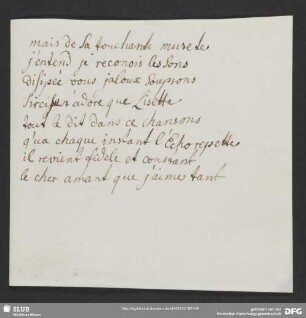 mais de sa touchante musete
j'entend je reconois les sons
disipée vous jaloux soupsons
Tircis n'adore que Lisette
tout le dit dans ce chansons
qu'a chaque instant l'Echo repette
il revient fidele et constant
le cher amant que j'aime tant
SLUB
Wir führen Wissen.
gefördert von der
Deutschen Forschungsgemeinschaft
DFG